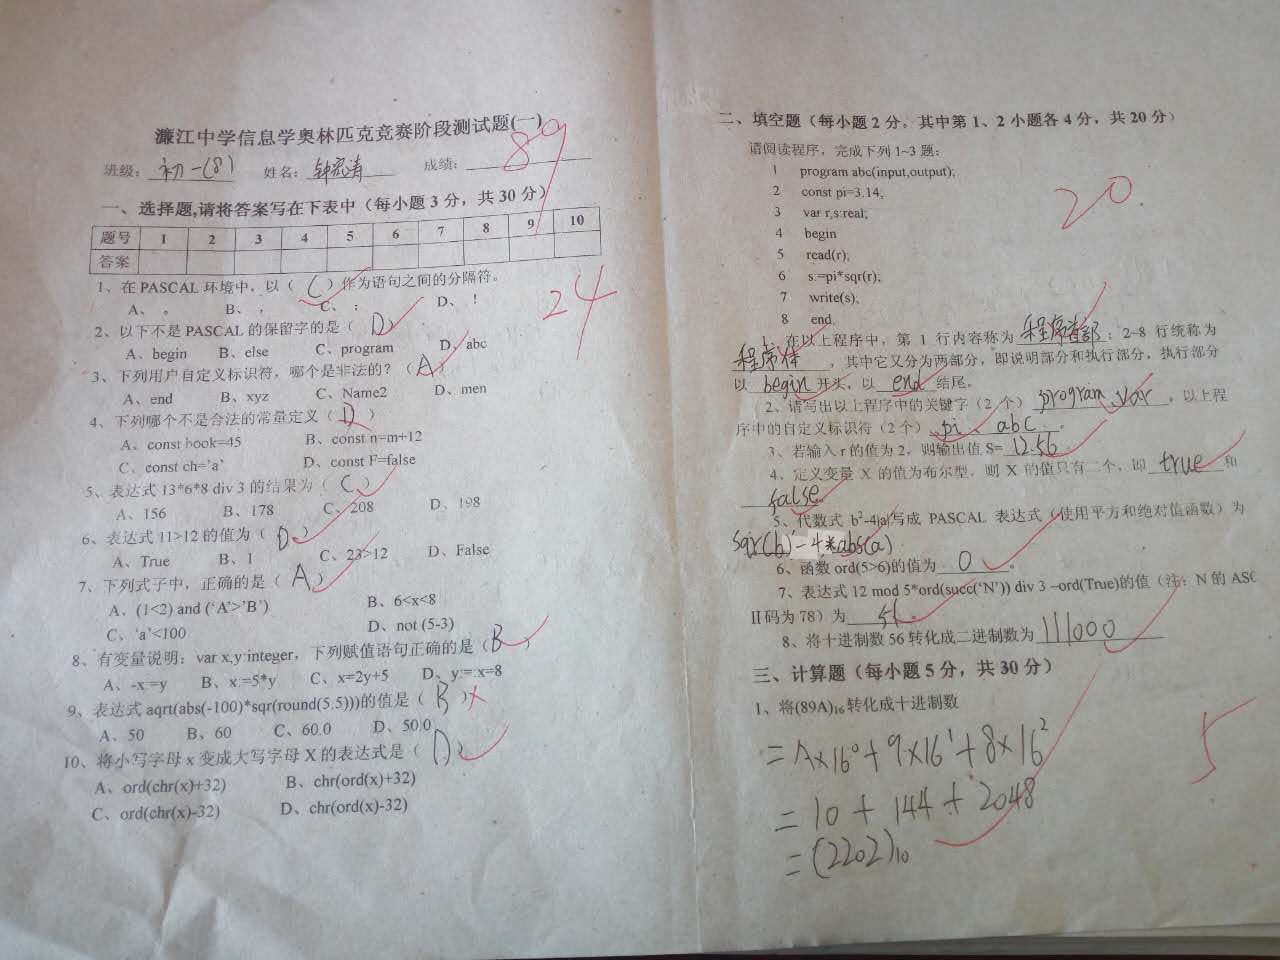 濂江中学信息学奥林匹克竞赛阶段测试题(一)
班级: 初一(8) 姓名: 成绩: 89
一、选择题,请将答案写在下表中（每小题 3 分，共 30 分）
题号 1 2 3 4 5 6 7 8 9 10
答案
24
1、在 PASCAL 环境中，以（ C ）作为语句之间的分隔符。
A、 。 B、 ， C、 ； D、 ！
2、以下不是 PASCAL 的保留字的是（ D ）
A、begin B、else C、program D、abc
3、下列用户自定义标识符，哪个是非法的？（ A ）
A、end B、xyz C、Name2 D、men
4、下列哪个不是合法的常量定义（ D ）
A、const book=45 B、const n=m+12
C、const ch='a' D、const F=false
5、表达式 13*6*8 div 3 的结果为（ C ）
A、156 B、178 C、208 D、198
6、表达式 11>12 的值为（ D ）
A、True B、1 C、23>12 D、False
7、下列式子中，正确的是（ A ）
A、(1<2) and ('A'>'B') B、6<x<8
C、'a'<100 D、not (5-3)
8、有变量说明：var x,y:integer，下列赋值语句正确的是（ B ）
A、-x:=y B、x:=5*y C、x=2y+5 D、y:=:x=8
9、表达式 aqrt(abs(-100)*sqr(round(5.5)))的值是（ B ）
A、50 B、60 C、60.0 D、50.0
10、将小写字母 x 变成大写字母 X 的表达式是（ D ）
A、ord(chr(x)+32) B、chr(ord(x)+32)
C、ord(chr(x)-32) D、chr(ord(x)-32)
二、填空题（每小题 2 分，其中第 1、2 小题各 4 分，共 20 分）
请阅读程序，完成下列 1~3 题：
20
1 program abc(input,output);
2 const pi=3.14;
3 var r,s:real;
4 begin
5 read(r);
6 s:=pi*sqr(r);
7 write(s);
8 end.
1、在以上程序中，第 1 行内容称为 程序首部；2~8 行统称为
程序体，其中它又分为两部分，即说明部分和执行部分，执行部分
以 begin 开头，以 end 结尾。
2、请写出以上程序中的关键字（2 个） program、var，以上程
序中的自定义标识符（2 个） pi、abc。
3、若输入 r 的值为 2，则输出值 S= 12.56
4、定义变量 X 的值为布尔型，则 X 的值只有二个，即 true 和
false。
5、代数式 b²-4|a|写成 PASCAL 表达式（使用平方和绝对值函数）为
sqr(b)-4*abs(a)
6、函数 ord(5>6)的值为 0。
7、表达式 12 mod 5*ord(succ('N')) div 3 –ord(True)的值（注：N 的 ASC
II码为 78）为 51。
8、将十进制数 56 转化成二进制数为 111000
三、计算题（每小题 5 分，共 30 分）
1、将(89A)₁₆ 转化成十进制数
= A×16⁰+9×16¹+8×16²
5
= 10+144+2048
= (2202)₁₀